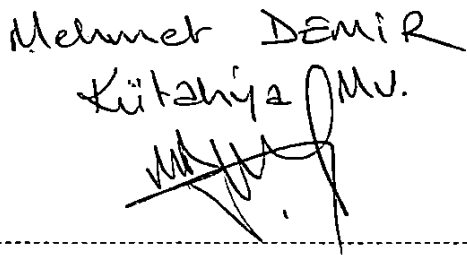 Mehmet DEMiR
Kütahya MV.